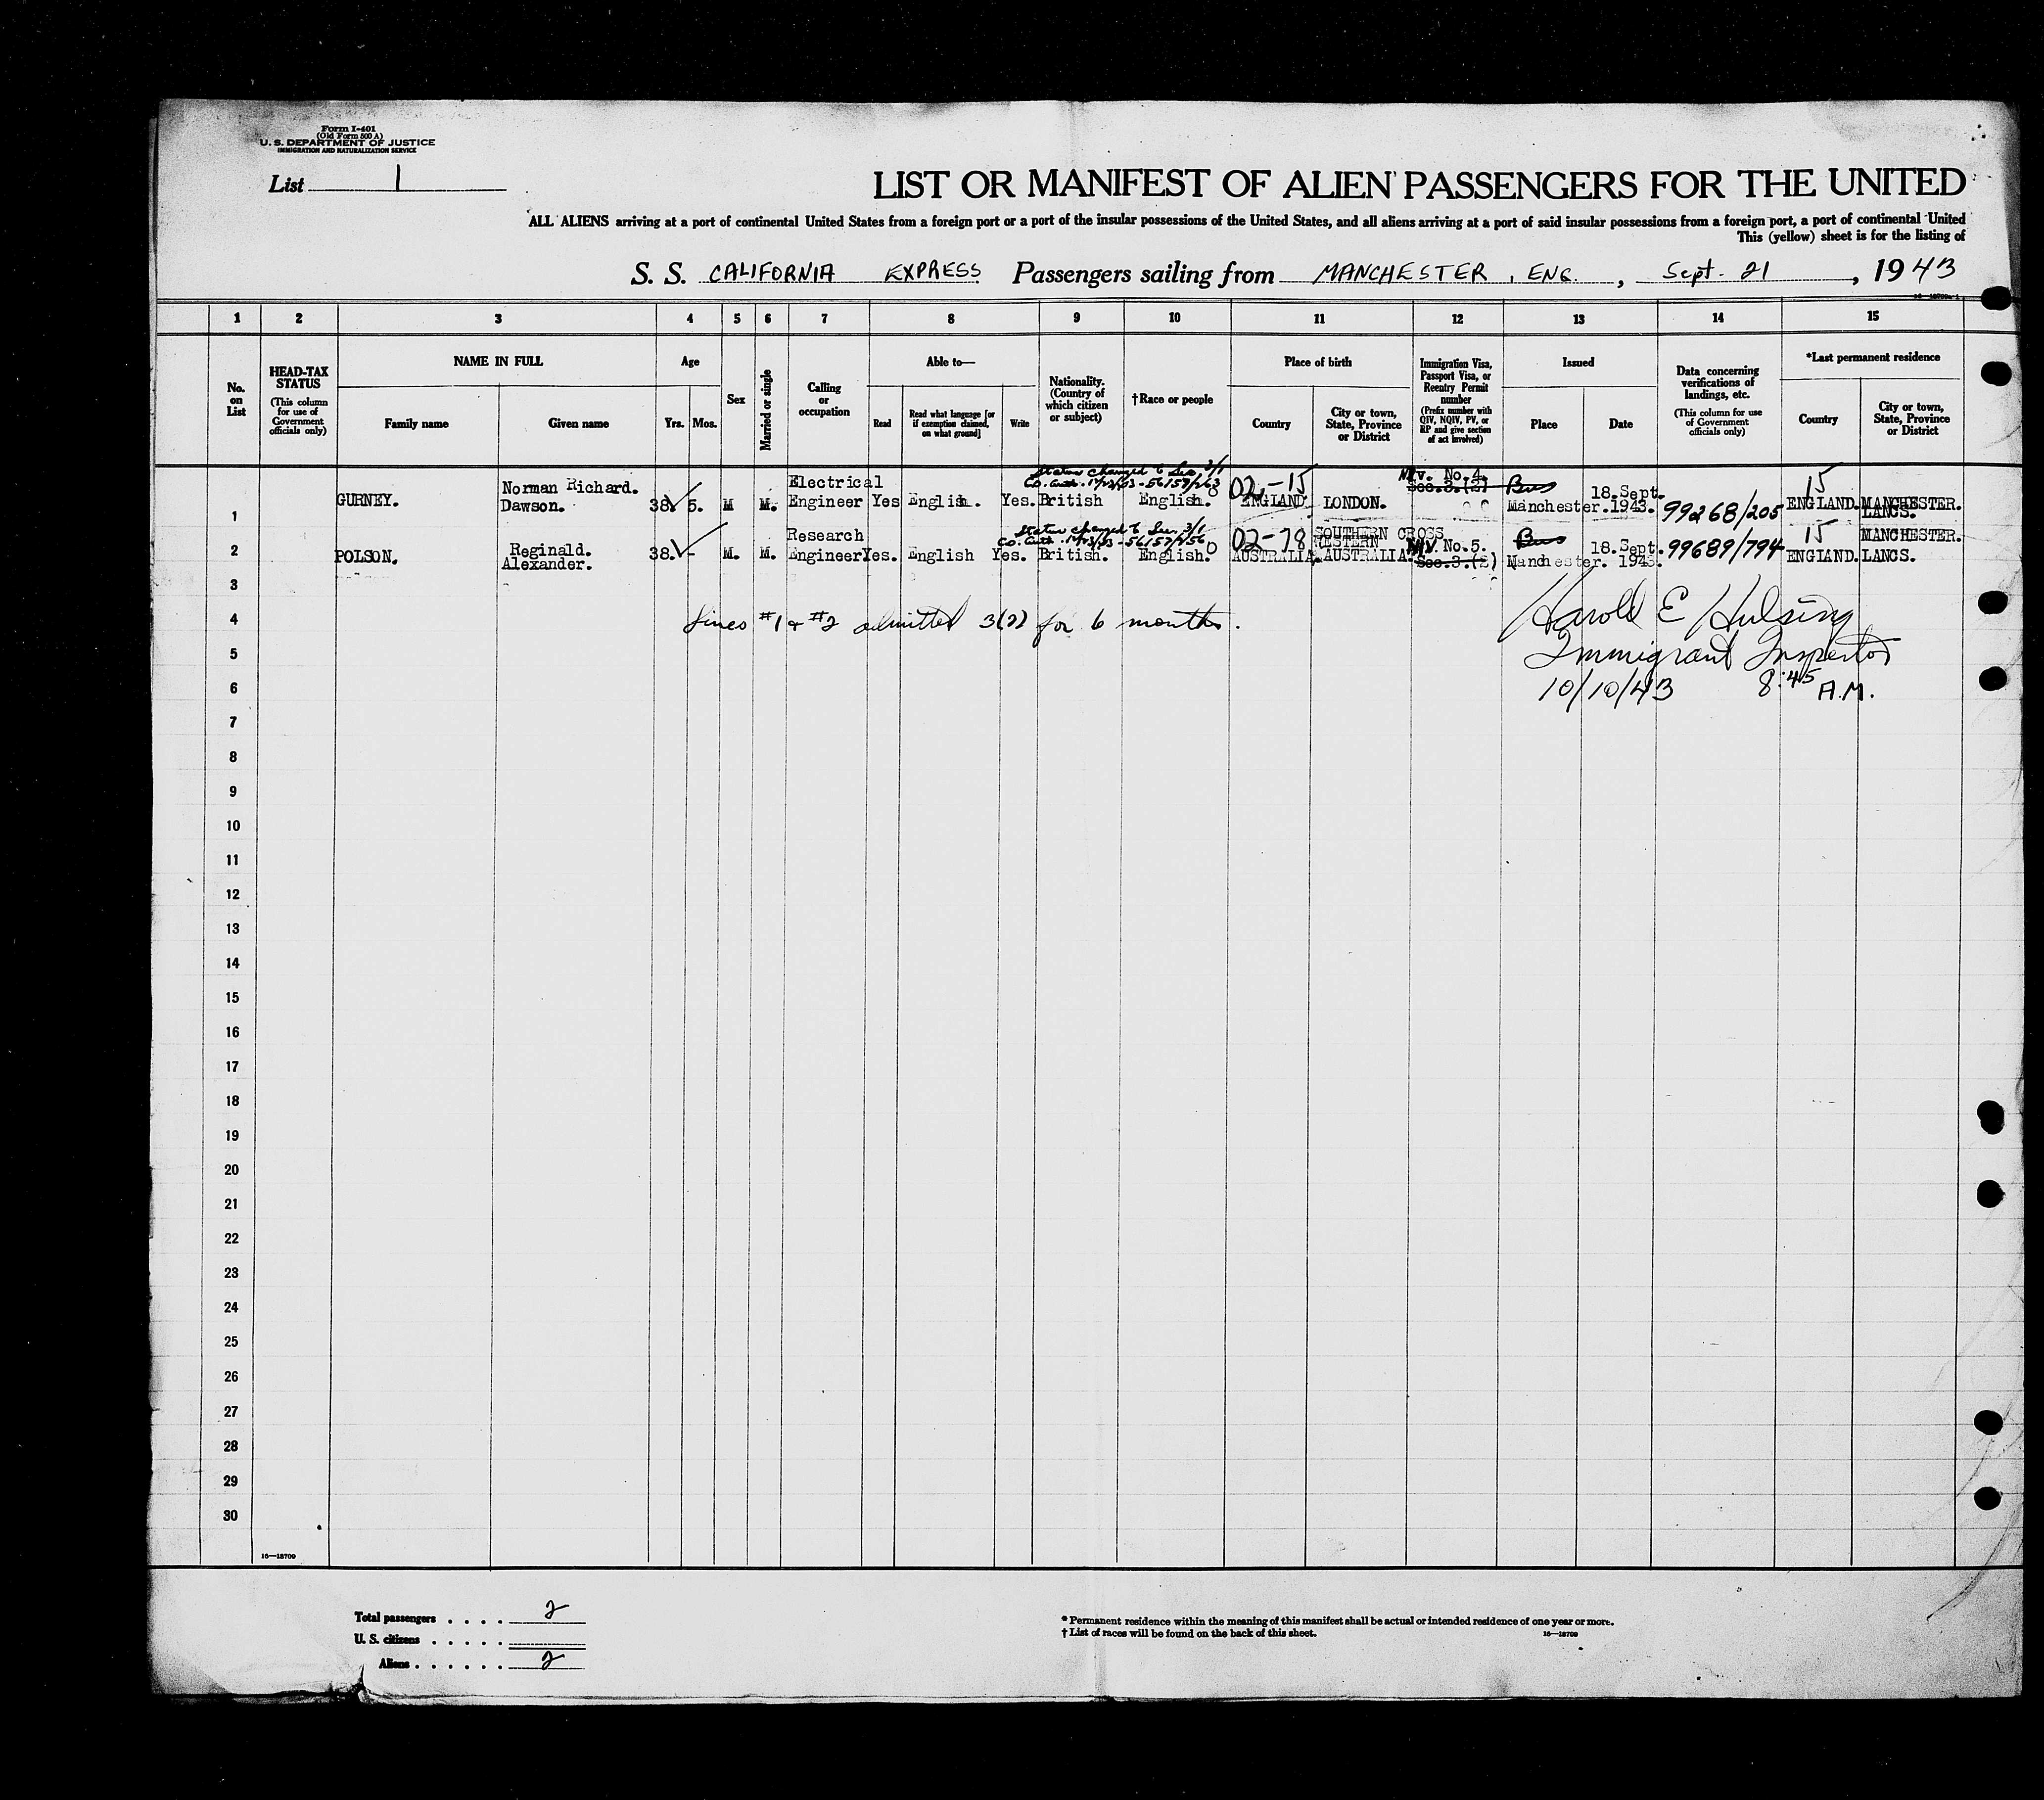 Form I-401
(Old Form 500 A)
U. S. DEPARTMENT OF JUSTICE
IMMIGRATION AND NATURALIZATION SERVICE
List 1
LIST OR MANIFEST OF ALIEN PASSENGERS FOR THE UNITED
ALL ALIENS arriving at a port of continental United States from a foreign port or a port of the insular possessions of the United States, and all aliens arriving at a port of said insular possessions from a foreign port, a port of continental United
This (yellow) sheet is for the listing of
S. S. CALIFORNIA EXPRESS Passengers sailing from MANCHESTER, ENG., Sept. 21, 1943
1 2 3 4 5 6 7 8 9 10 11 12 13 14 15
No. on List
HEAD-TAX STATUS
(This column for use of Government officials only)
NAME IN FULL
Family name Given name
Age
Yrs. Mos.
Sex
Married or single
Calling or occupation
Able to—
Read Read what language [or if exemption claimed, on what ground] Write
Nationality. (Country of which citizen or subject)
†Race or people
Place of birth
Country City or town, State, Province or District
Immigration Visa, Passport Visa, or Reentry Permit number
(Prefix number with QIV, NQIV, PV, or RP and give section of act involved)
Issued
Place Date
Data concerning verifications of landings, etc.
(This column for use of Government officials only)
*Last permanent residence
Country City or town, State, Province or District
1 GURNEY. Norman Richard. Dawson. 38 5. M M. Electrical Engineer Yes English. Yes. British English. 02-15 ENGLAND. LONDON. No.4. Sec.3.(2) Manchester. 18.Sept. 1943. 99268/205 15 ENGLAND. MANCHESTER. LANCS.
Status changed to Sec 3/1
2 POLSON. Reginald. Alexander. 38. - M. M. Research Engineer Yes. English Yes. British. English. 02-78 AUSTRALIA. SOUTHERN CROSS WESTERN AUSTRALIA. No.5. Sec.3.(2) Manchester. 18.Sept. 1943. 99689/794 15 ENGLAND. MANCHESTER. LANCS.
Status changed to Sec 3/1
3
4 Lines #1 & #2 admitted 3(2) for 6 months. Harold E Hulsing
5 Immigrant Inspector
6 10/10/43 8:45 A.M.
7
8
9
10
11
12
13
14
15
16
17
18
19
20
21
22
23
24
25
26
27
28
29
30
16—18709
Total passengers . . . . 2
U. S. citizens . . . . .
Aliens . . . . . . 2
* Permanent residence within the meaning of this manifest shall be actual or intended residence of one year or more.
† List of races will be found on the back of this sheet.
16—18709